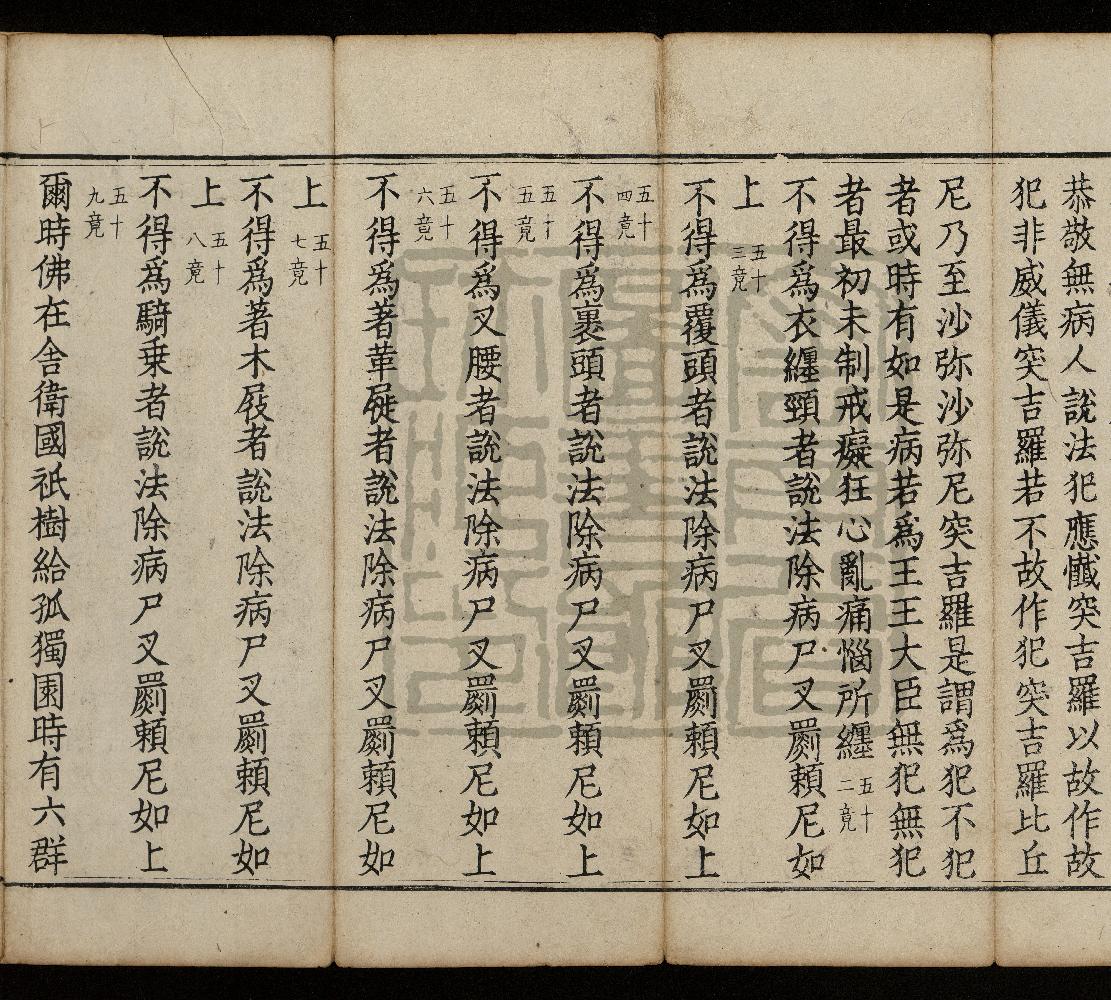 恭敬無病人說法犯應懺突吉羅以故作故
犯非威儀突吉羅若不故作犯突吉羅比丘
尼乃至沙弥沙弥尼突吉羅是謂為犯不犯
者或時有如是病若為王王大臣無犯無犯
者最初未制戒癡狂心亂痛惱所纏五十二竟
不得為衣纏頸者說法除病尸叉罽頼尼如
上五十三竟
不得為覆頭者說法除病尸叉罽頼尼如上
五十四竟
不得為裹頭者說法除病尸叉罽頼尼如上
五十五竟
不得為叉腰者說法除病尸叉罽頼尼如上
五十六竟
不得為著革屣者說法除病尸叉罽頼尼如
上五十七竟
不得為著木屐者說法除病尸叉罽頼尼如
上五十八竟
不得為騎乗者說法除病尸叉罽頼尼如上
五十九竟
爾時佛在舍衛國祇樹給孤獨園時有六群